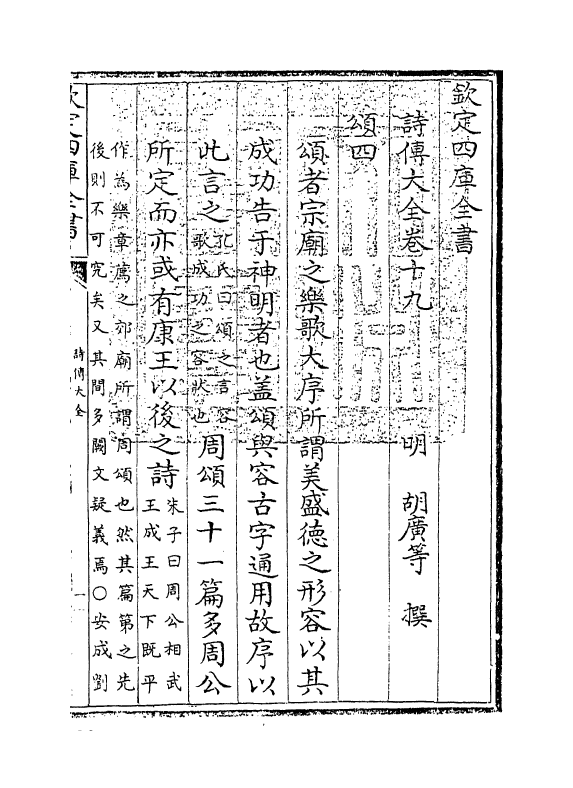 欽定四庫全書
詩傳大全卷十九　明　胡廣等　撰
頌四
頌者宗廟之樂歌大序所謂美盛德之形容以其
成功告于神明者也蓋頌與容古字通用故序以
此言之孔氏曰頌之言容歌成功之容狀也周頌三十一篇多周公
所定而亦或有康王以後之詩朱子曰周公相武王成王天下既平
作為樂章薦之郊廟所謂周頌也然其篇第之先
後則不可究矣又其間多闕文疑義焉○安成劉
欽定四庫全書
詩傳大全
一